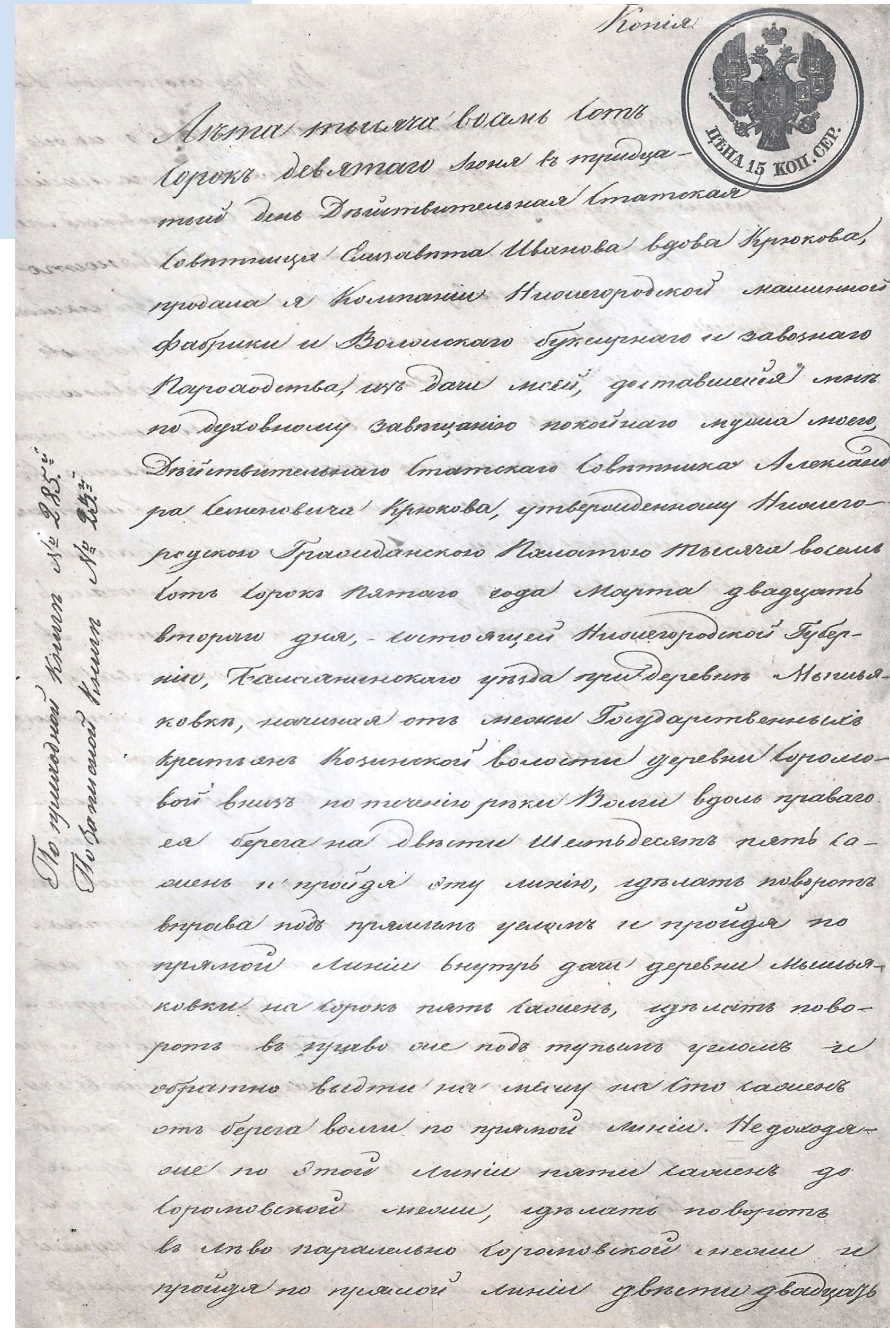 Копія
ЦѢНА 15 КОП. СЕР.
Лѣта тысяча восемь сотъ
сорокъ девятаго Іюня въ тридца-
тый день Дѣйствительная Статская
Совѣтница Елизавета Иванова вдова Крюкова,
продала я Компаніи Нижегородской машинной
фабрики и Волжскаго буксирнаго и завознаго
Пароходства, изъ дачи моей, доставшейся мнѣ
по духовному завѣщанію покойнаго мужа моего,
Дѣйствительнаго Статскаго Совѣтника Александ
ра Семеновича Крюкова, утвержденному Нижего-
родскою Гражданскою Палатою тысяча восемь
сотъ сорокъ пятаго года Марта двадцать
втораго дня, - состоящей Нижегородской Губер-
ніи, Балахнинскаго уѣзда при деревнѣ Мышья-
ковкѣ, начиная отъ межи Государственныхъ
крестьянъ Козинской волости деревни Сормо-
вой внизъ по теченію рѣки Волги вдоль праваго
ея берега на двѣсти шестьдесятъ пять са-
женъ и пройдя эту линію, сдѣлать поворотъ
вправо подъ прямымъ угломъ и пройдя по
прямой линіи внутрь дачи деревни Мышья-
ковки на сорокъ пять саженъ, сдѣлать пово-
ротъ въ право же подъ тупымъ угломъ и
обратно выдти на межу на сто саженъ
отъ берега волги по прямой линіи. Недоходя-
же по этой линіи пяти саженъ до
Сормовской межи, сдѣлать поворотъ
въ лѣво паралельно Сормовской межи и
пройдя по прямой линіи двѣсти двадцать
По приходной книгѣ № 285.й
По записной книгѣ № 23й